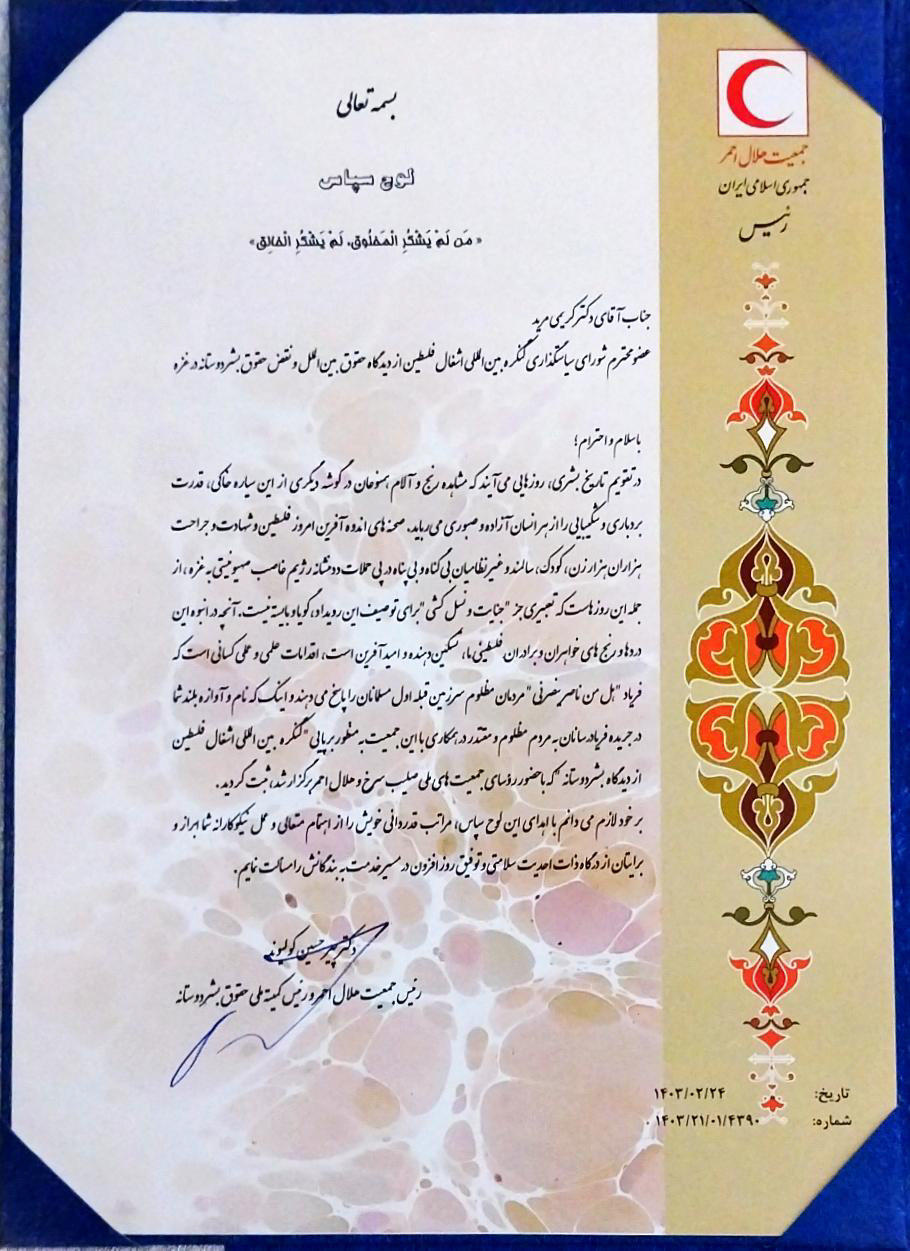 جمعیت هلال احمر
جمهوری اسلامی ایران
رئیس
بسمه تعالی
لوح سپاس
« مَن لَمْ یَشْکُرِ الْمَخلُوق، لَمْ یَشْکُرِ الْخالِق»
جناب آقای دکتر کریمی مرید
عضو محترم شورای سیاستگذاری کنگره بین المللی اشغال فلسطین از دیدگاه حقوق بین الملل و نقض حقوق بشردوستانه در غزه
باسلام و احترام؛
در تقویم تاریخ بشری، روزهایی می آیند که مشاهده رنج و آلام همنوعان در گوشه دیگری از این سیاره خاکی، قدرت
بردباری و شکیبایی را از هر انسان آزاده و صبوری می رباید. صحنه های اندوه آفرین امروز فلسطین و شهادت و جراحت
هزاران هزار زن، کودک، سالمند و غیرنظامیان بی گناه و بی پناه در پی حملات ددمنشانه رژیم غاصب صهیونیستی به غزه، از
جمله این روزهاست که تعبیری جز "جنایت و نسل کشی" برای توصیف این رویداد، گویا و بایسته نیست. آنچه در انبوه این
دردها و رنج های خواهران و برادران فلسطینی ما، تسکین دهنده و امیدآفرین است، اقدامات علمی و عملی کسانی است که
فریاد "هل من ناصر ینصرنی" مردمان مظلوم سرزمین قبله اول مسلمانان را پاسخ می دهند و اینک که نام و آوازه بلند شما
در جریده فریادرسانان به مردم مظلوم و مقتدر در همکاری با این جمعیت به منظور برپایی "کنگره بین المللی اشغال فلسطین
از دیدگاه بشردوستانه" که با حضور رؤسای جمعیت های ملی صلیب سرخ و هلال احمر برگزار شد، ثبت گردید.
بر خود لازم می دانم با اهدای این لوح سپاس، مراتب قدردانی خویش را از اهتمام متعالی و عمل نیکوکارانه شما ابراز و
برایتان از درگاه ذات احدیت سلامتی و توفیق روز افزون در مسیر خدمت به بندگانش را مسألت نمایم.
دکتر پیرحسین کولیوند
رئیس جمعیت هلال احمر و رئیس کمیته ملی حقوق بشردوستانه
تاریخ: ۱۴۰۳/۰۲/۲۴
شماره: ۱۴۰۳/۲۱/۰۱/۴۳۹۰